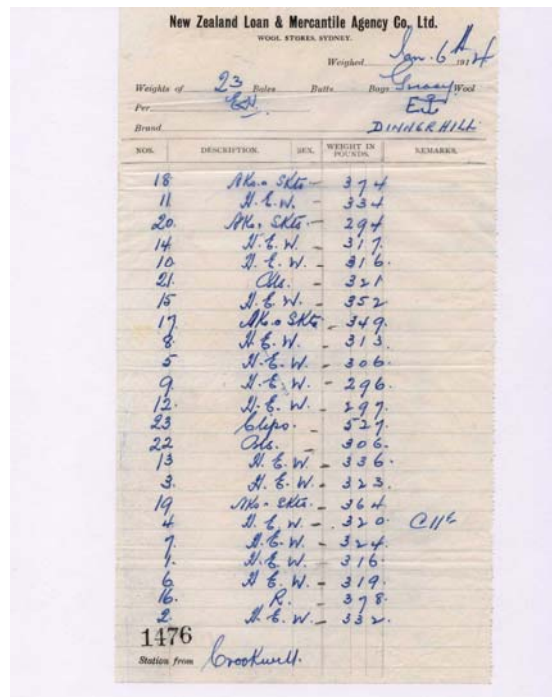 New Zealand Loan & Mercantile Agency Co., Ltd.
WOOL STORES, SYDNEY.
Weighed Jan. 6th 1924
Weights of 23 Bales Butts Bags Greasy Wool
Per
Brand DINNERHILL
NOS. DESCRIPTION. SEX. WEIGHT IN POUNDS. REMARKS.
18 Nks. & Skts - 374
11 H. E. W. - 334
20. Nks. Skts. - 294
14 H. E. W. - 317.
10. H. E. W. - 316.
21. Cls. - 321
15 H. E. W. - 352
17 Nks. & Skts - 349.
8. H. E. W. - 313.
5 H. E. W. - 306.
9. H. E. W. - 296.
12. H. E. W. - 297.
23 Clips. - 527.
22 - 306.
13 H. E. W. - 336.
3. H. E. W. - 323.
19 Nks. Skts. - 364
4 H. E. W. - 320
7. H. E. W. - 324.
1. H. E. W. - 316
6. H. E. W. - 319.
16. R. - 378.
2. H. E. W. - 332.
1476
Station from Crookwell.